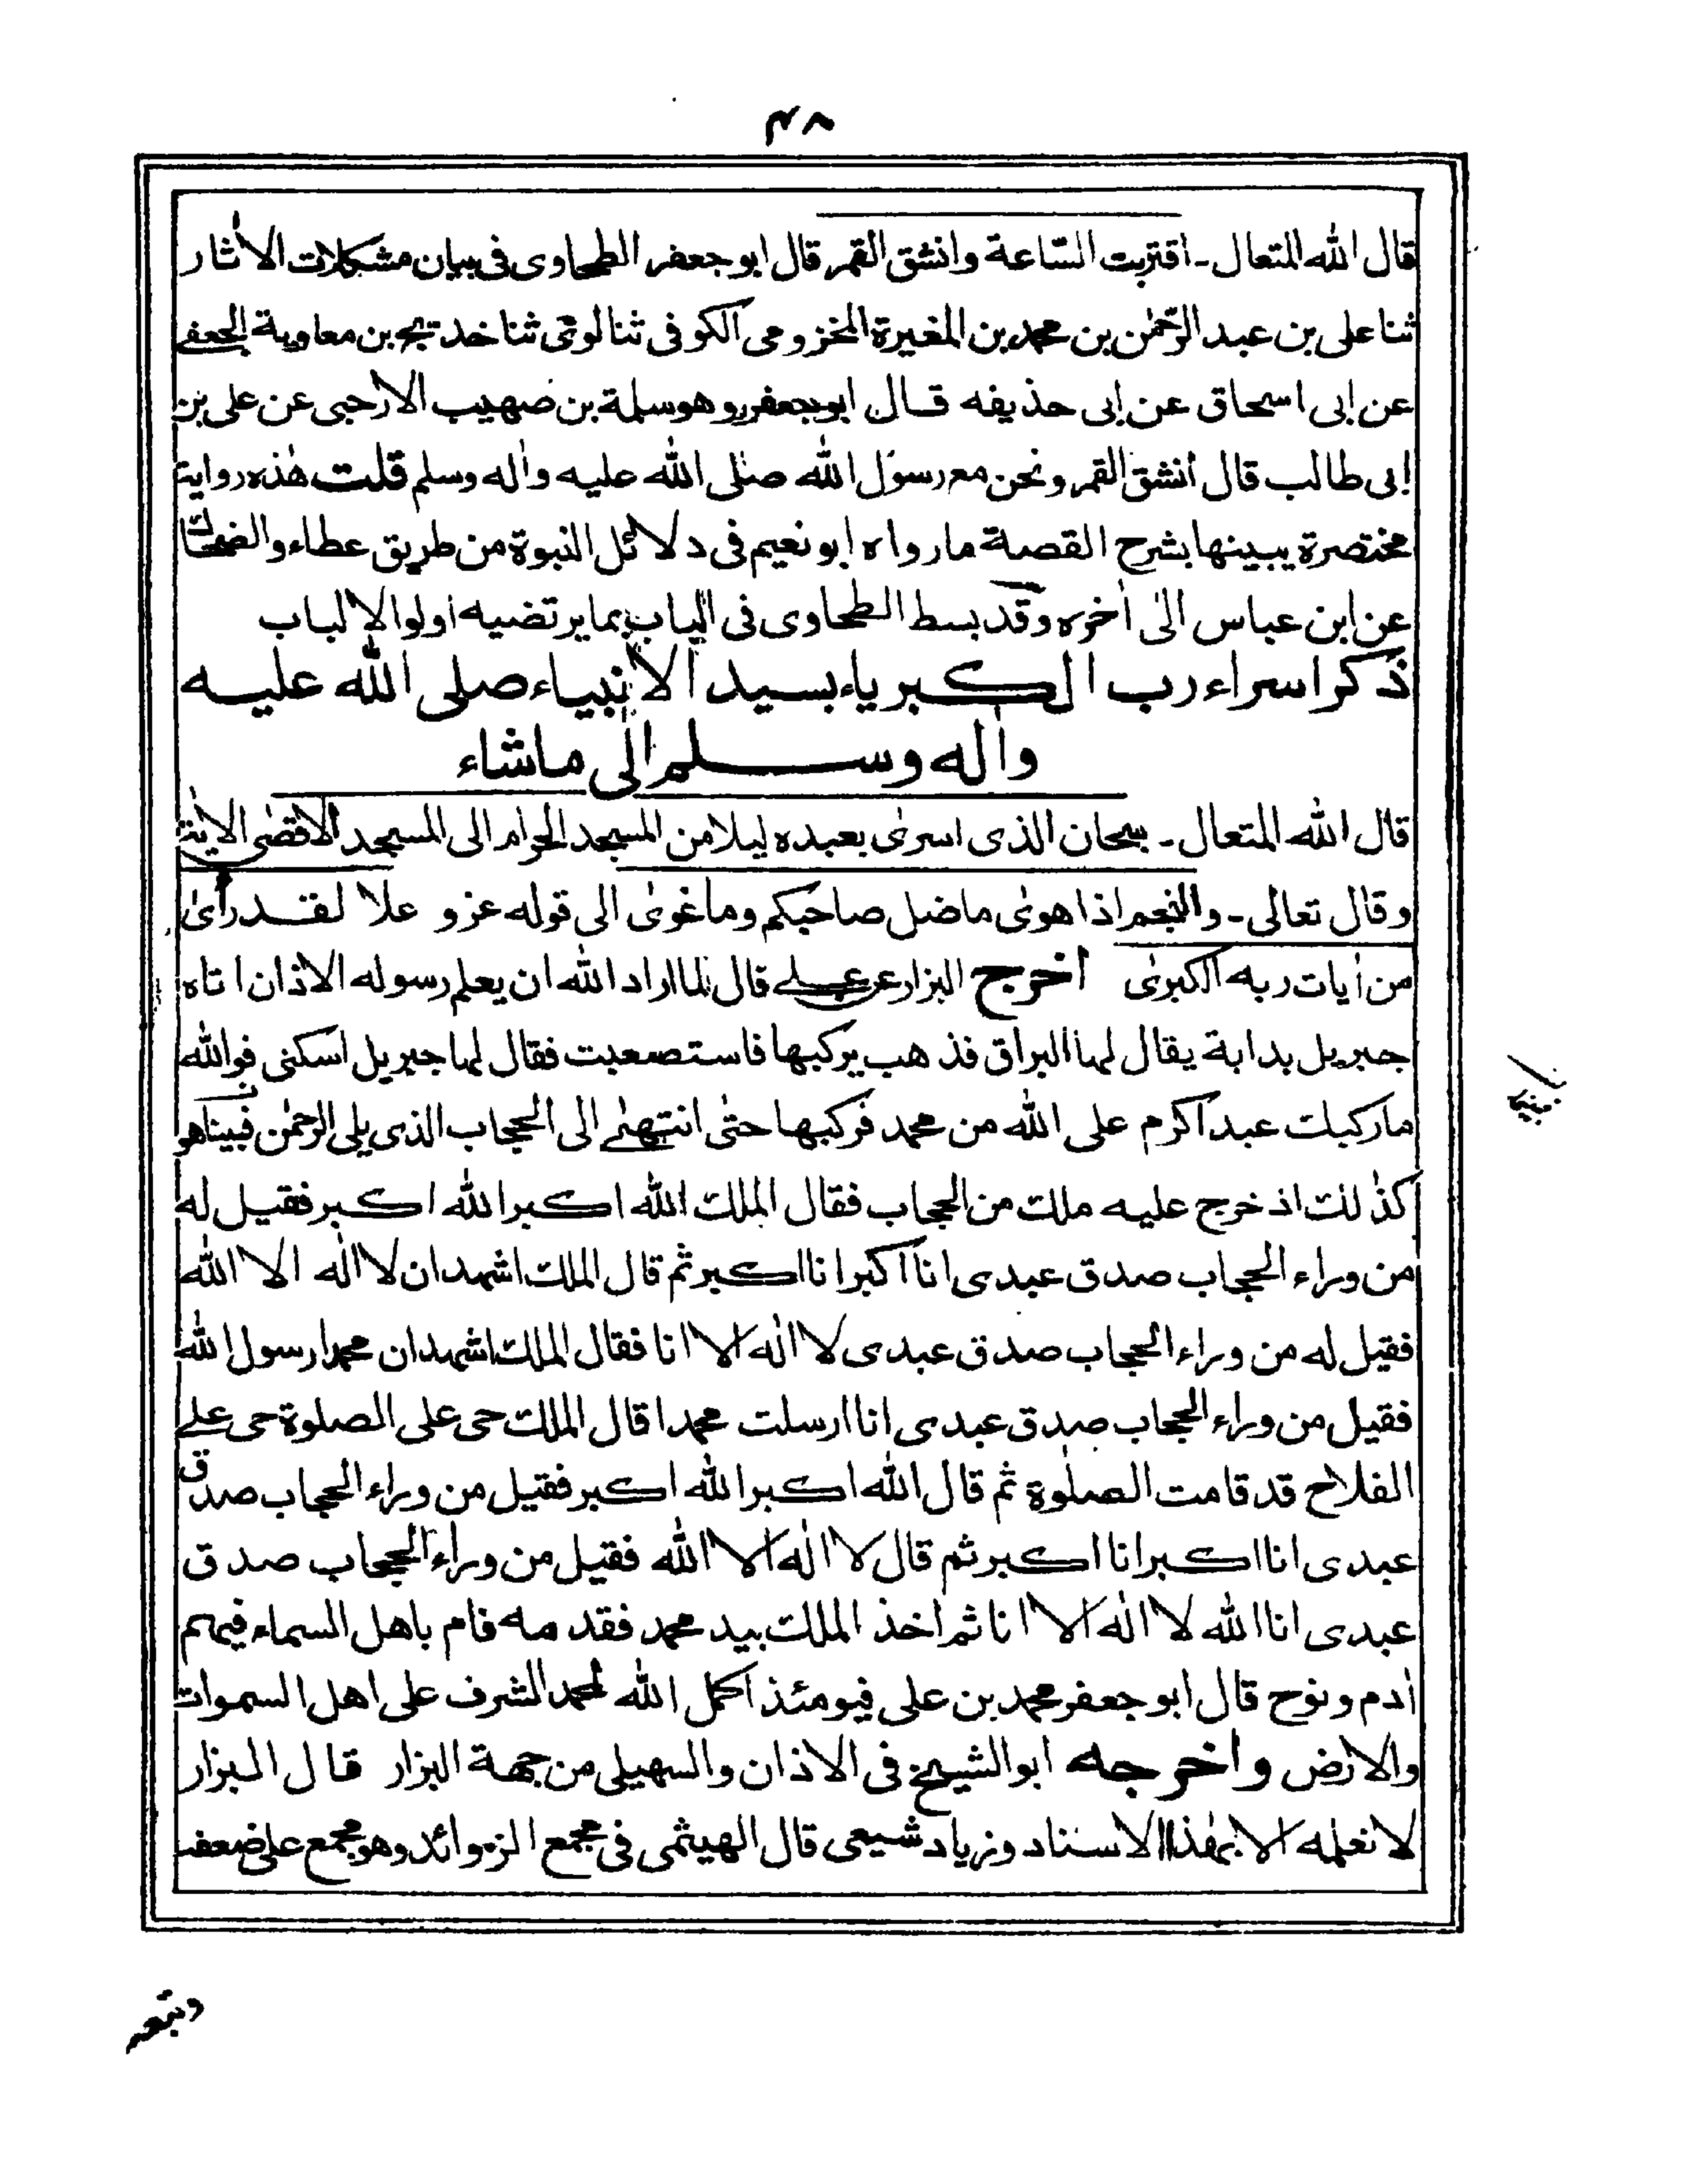 ٤٨
قال الله المتعال ـ اقتربت السّاعة وانشق القمر قال ابو جعفر الطحاوى فى بيان مشكلات الاٰثار
ثنا على بن عبد الرّحمٰن بن محمد بن المغيرة المخزومى الكوفى ثنا لوئى ثنا خديج بن معاوية الجعفے
عن ابى اسحاق عن ابى حذيفه قال ابو جعفر وهو سلمة بن صهيب الارحبى عن على بن
ابى طالب قال انشق القمر ونحن مع رسول الله صلى الله عليه واٰله وسلم قلت هٰذه رواية
مختصرة يبينها بشرح القصة ما رواه ابو نعيم فى دلائل النبوة من طريق عطاء والضحاك
عن ابن عباس الىٰ اٰخره وقد بسط الطحاوى فى الباب بما يرتضيه اولوا الالباب
ذكر اسراء رب الكبرياء بسيد الانبياء صلى الله عليه
واٰله وسلم الى ماشاء
قال الله المتعال ـ سبحان الذى اسرىٰ بعبده ليلا من المسجد الحرام الى المسجد الاقصٰى الاية
وقال تعالى ـ والنجم اذا هوىٰ ماضل صاحبكم وما غوىٰ الى قوله عز و علا لقد راٰىٰ
من اٰيات ربه الكبرىٰ اخرج البزار عن علے قال لما اراد الله ان يعلم رسوله الاذان اتاه
جبريل بدابة يقال لها البراق فذهب يركبها فاستصعبت فقال لها جبريل اسكنى فوالله
ماركبك عبد اكرم على الله من محمد فركبها حتىٰ انتهىٰ الى الحجاب الذى يلى الرحمٰن فبينا هو
كذٰلك اذ خرج عليه ملك من الحجاب فقال الملك الله اكبر الله اكبر فقيل له
من وراء الحجاب صدق عبدى انا اكبر انا اكبر ثم قال الملك اشهد ان لا اله الا الله
فقيل له من وراء الحجاب صدق عبدى لا اله الا انا فقال الملك اشهد ان محمدا رسول الله
فقيل من وراء الحجاب صدق عبدى انا ارسلت محمدا قال الملك حى على الصلوة حى علے
الفلاح قد قامت الصلوٰة ثم قال الله اكبر الله اكبر فقيل من وراء الحجاب صدق
عبدى انا اكبر انا اكبر ثم قال لا اله الا الله فقيل من وراء الحجاب صدق
عبدى انا الله لا اله الا انا ثم اخذ الملك بيد محمد فقدمه فام باهل السماء فيهم
اٰدم ونوح قال ابو جعفر محمد بن على فيومئذ اكمل الله لمحمد الشرف على اهل السموات
والارض واخرجه ابو الشيخ فى الاذان والسهيلى من جهة البزار قال البزار
لا نعلمه الا بهٰذا الاسناد وزياد شيعى قال الهيثمى فى مجمع الزوائد وهو مجمع على ضعفه